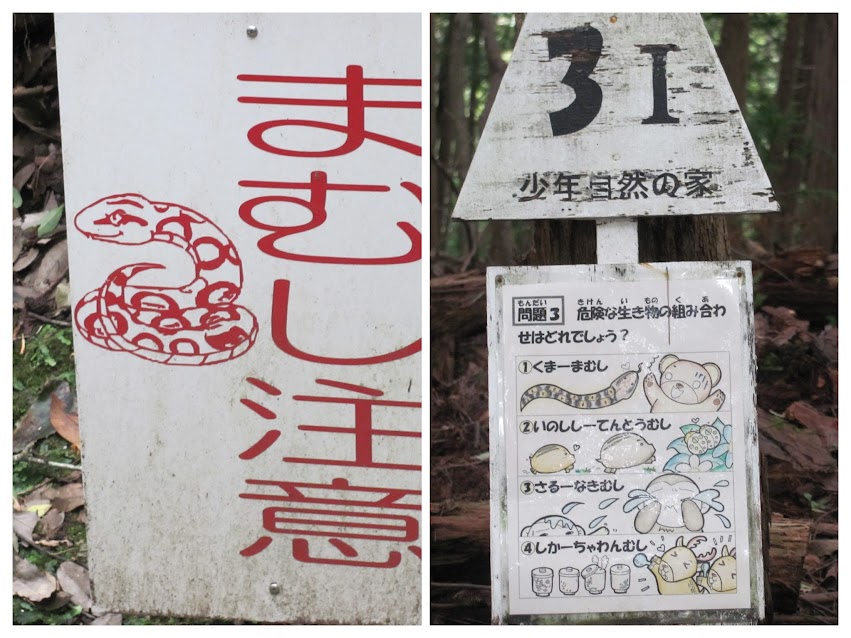 まむし注意
3 I
少年自然の家
もんだい きけん い もの く あ
問題3 危険な生き物の組み合わ
せはどれでしょう？
①くまーまむし
②いのししーてんとうむし
③さるーなきむし
④しかーちゃわんむし